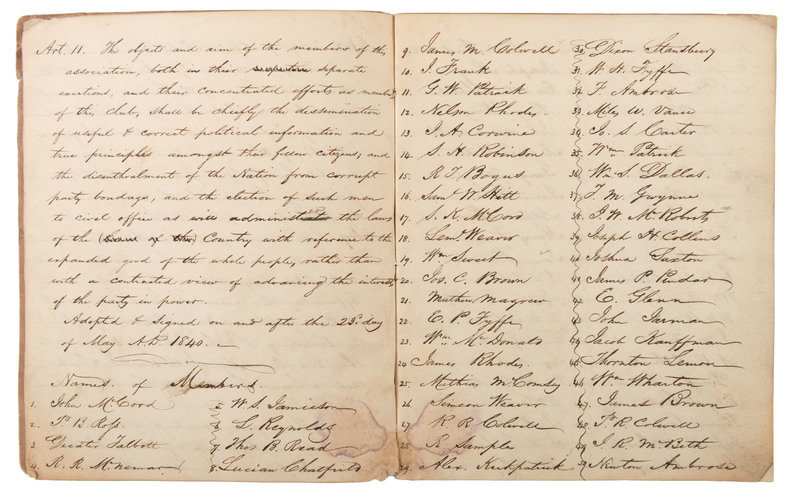 Art. 11. The objects and aim of the members of this
association, both in their separate
exertions, and their concentrated efforts as members
of this club, shall be chiefly the dissemination
of useful & correct political information and
true principles amongst their fellow citizens; and
the disenthralment of the Nation from corrupt
party bondage; and the election of such men
to civil office as will administer the laws
of the (laws of the) Country with reference to the
expanded good of the whole people, rather than
with a contracted view of advancing the interest
of the party in power.
Adopted & Signed on and after the 23d day
of May A.D. 1840.
Names of Members
1. John McCord
2. P. B. Ross.
3. Talbott
4. R. R. McNemar
5. W. S. Jamieson
6. L. Reynolds
7. Thos B. Read
8. Lucian Chatfield
9. James M. Colwell
10. J. Frank
11. G. W. Patrick
12. Nelson Rhodes.
13. J. A. Corwine
14. S. H. Robinson
15. R. T. Bogus
16. Saml. W. Hatt
17. S. K. McCord
18. Leml. Weaver
19. Wm Sweet
20. Jos. C. Brown
21. Mathew Magrew
22. E. P. Fyffe
23. Wm McDonald
24. James Rhodes.
25. Mathias McComsey
26. Simeon Weaver
27. R. R. Colwell
28. R. Samples
29. Alex. Kirkpatrick
30. Dixon Stansbury
31. W. H. Fyffe
32. F. Ambrose
33. Miles W. Vance
34. G. S. Carter
35. Wm Patrick
36. Wm. S. Dallas.
37. J. M. Gwynne
38. J. W. McRoberts
39. Joseph H. Collins
40. Joshua Saxton
41. James P.
42. E. Glenn
43. John Jarman
44. Jacob Kauffman
45. Thornton Lemon
46. Wm Wharton
47. James Brown
48. F. R. Colwell
49. J. R. M. Beth
50. Newton Ambrose